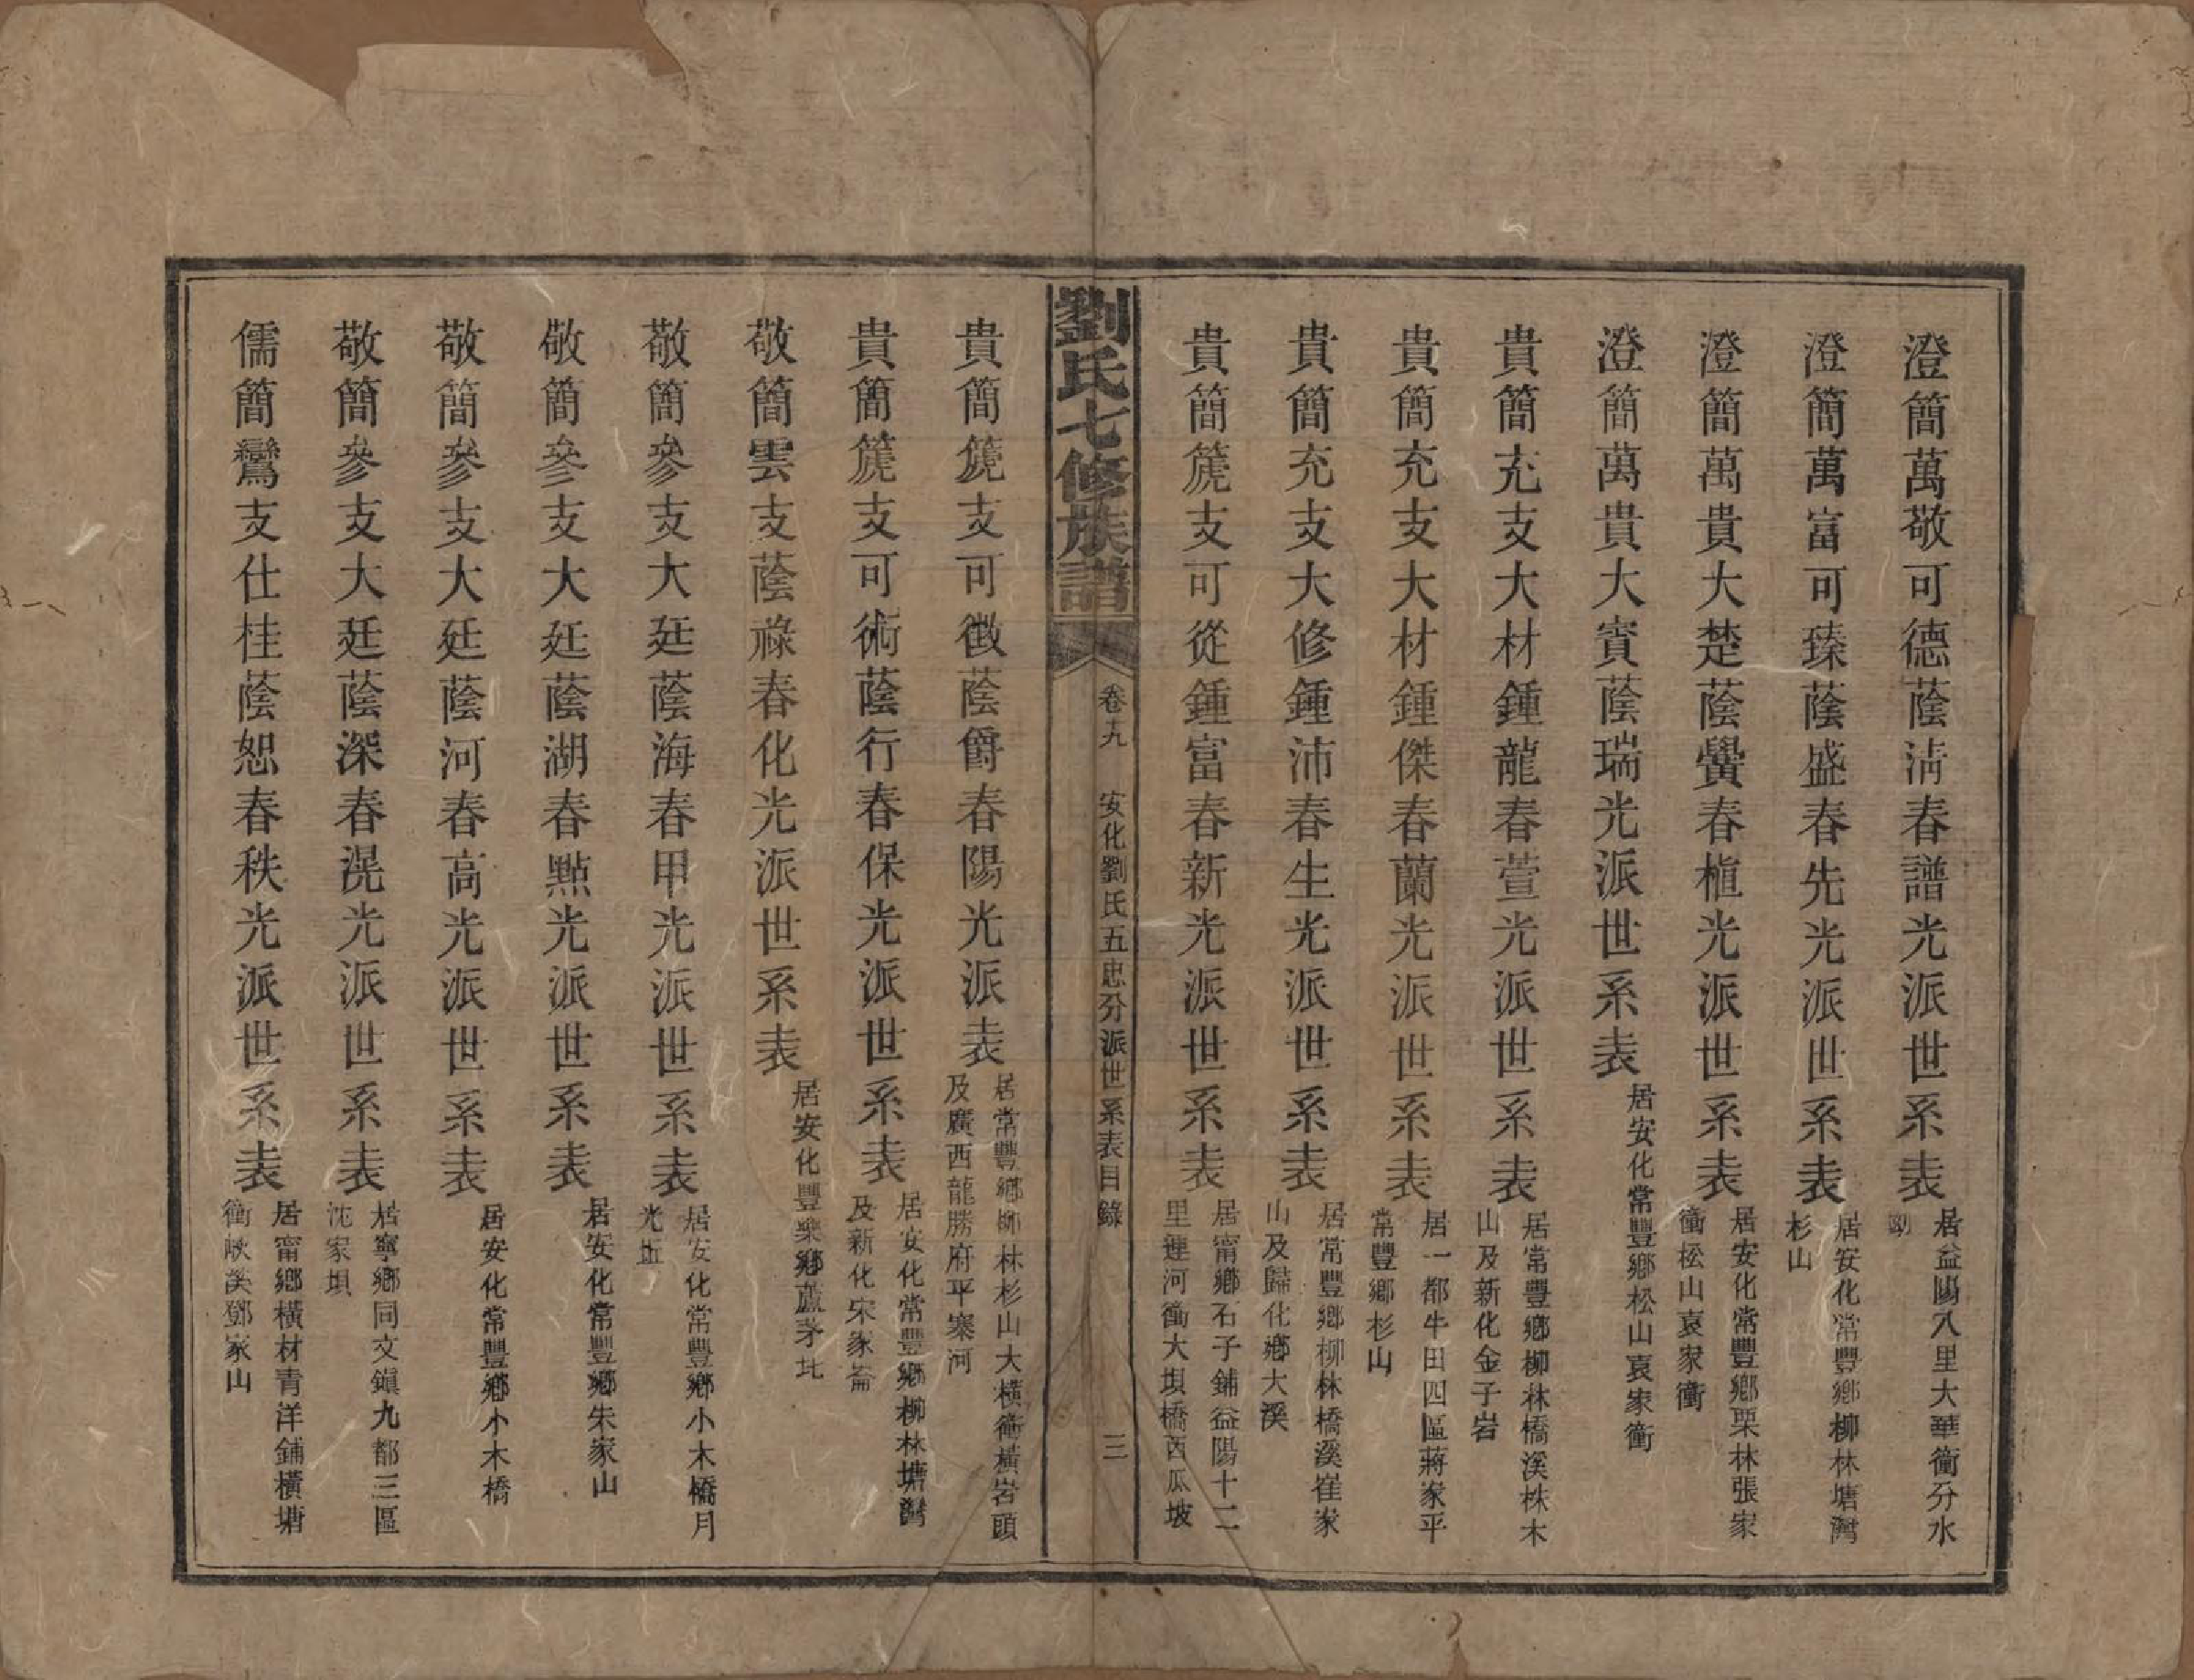 澄簡萬敬可德蔭淸春譜光派世系表 居益陽八里大華衝分水
澄簡萬富可臻蔭盛春先光派世系表 居安化常豐鄉柳林塘灣杉山
澄簡萬貴大楚蔭黌春植光派世系表 居安化常豐鄉栗林張家衝松山袁家衝
澄簡萬貴大賓蔭瑞光派世系表 居安化常豐鄉松山袁家衝
貴簡充支大材鍾龍春萱光派世系表 居常豐鄉柳林橋溪株木山及新化金子岩
貴簡充支大材鍾傑春蘭光派世系表 居一都牛田四區蔣家平常豐鄉杉山
貴簡充支大修鍾沛春生光派世系表 居常豐鄉柳林橋溪崔家山及歸化鄉大溪
貴簡篪支可從鍾富春新光派世系表 居甯鄉石子鋪益陽十二里連河衝大垻橋西瓜坡
劉氏七修族譜 卷九 安化劉氏五忠分派世系表目錄 三
貴簡篪支可徵蔭爵春陽光派表 居常豐鄉柳林杉山大橫衝橫岩頭及廣西龍勝府平寨河
貴簡篪支可術蔭行春保光派世系表 居安化常豐鄉柳林塘灣及新化宋家崙
敬簡雲支蔭祿春化光派世系表 居安化豐樂鄉蘆茅圫
敬簡參支大廷蔭海春甲光派世系表 居安化常豐鄉小木橋月光坵
敬簡參支大廷蔭湖春點光派世系表 居安化常豐鄉朱家山
敬簡參支大廷蔭河春高光派世系表 居安化常豐鄉小木橋
敬簡參支大廷蔭深春滉光派世系表 居寧鄉同文鎭九都三區沈家垻
儒簡鸞支仕桂蔭恕春秩光派世系表 居甯鄉橫材青洋鋪橫塘衝峽溪鄧家山